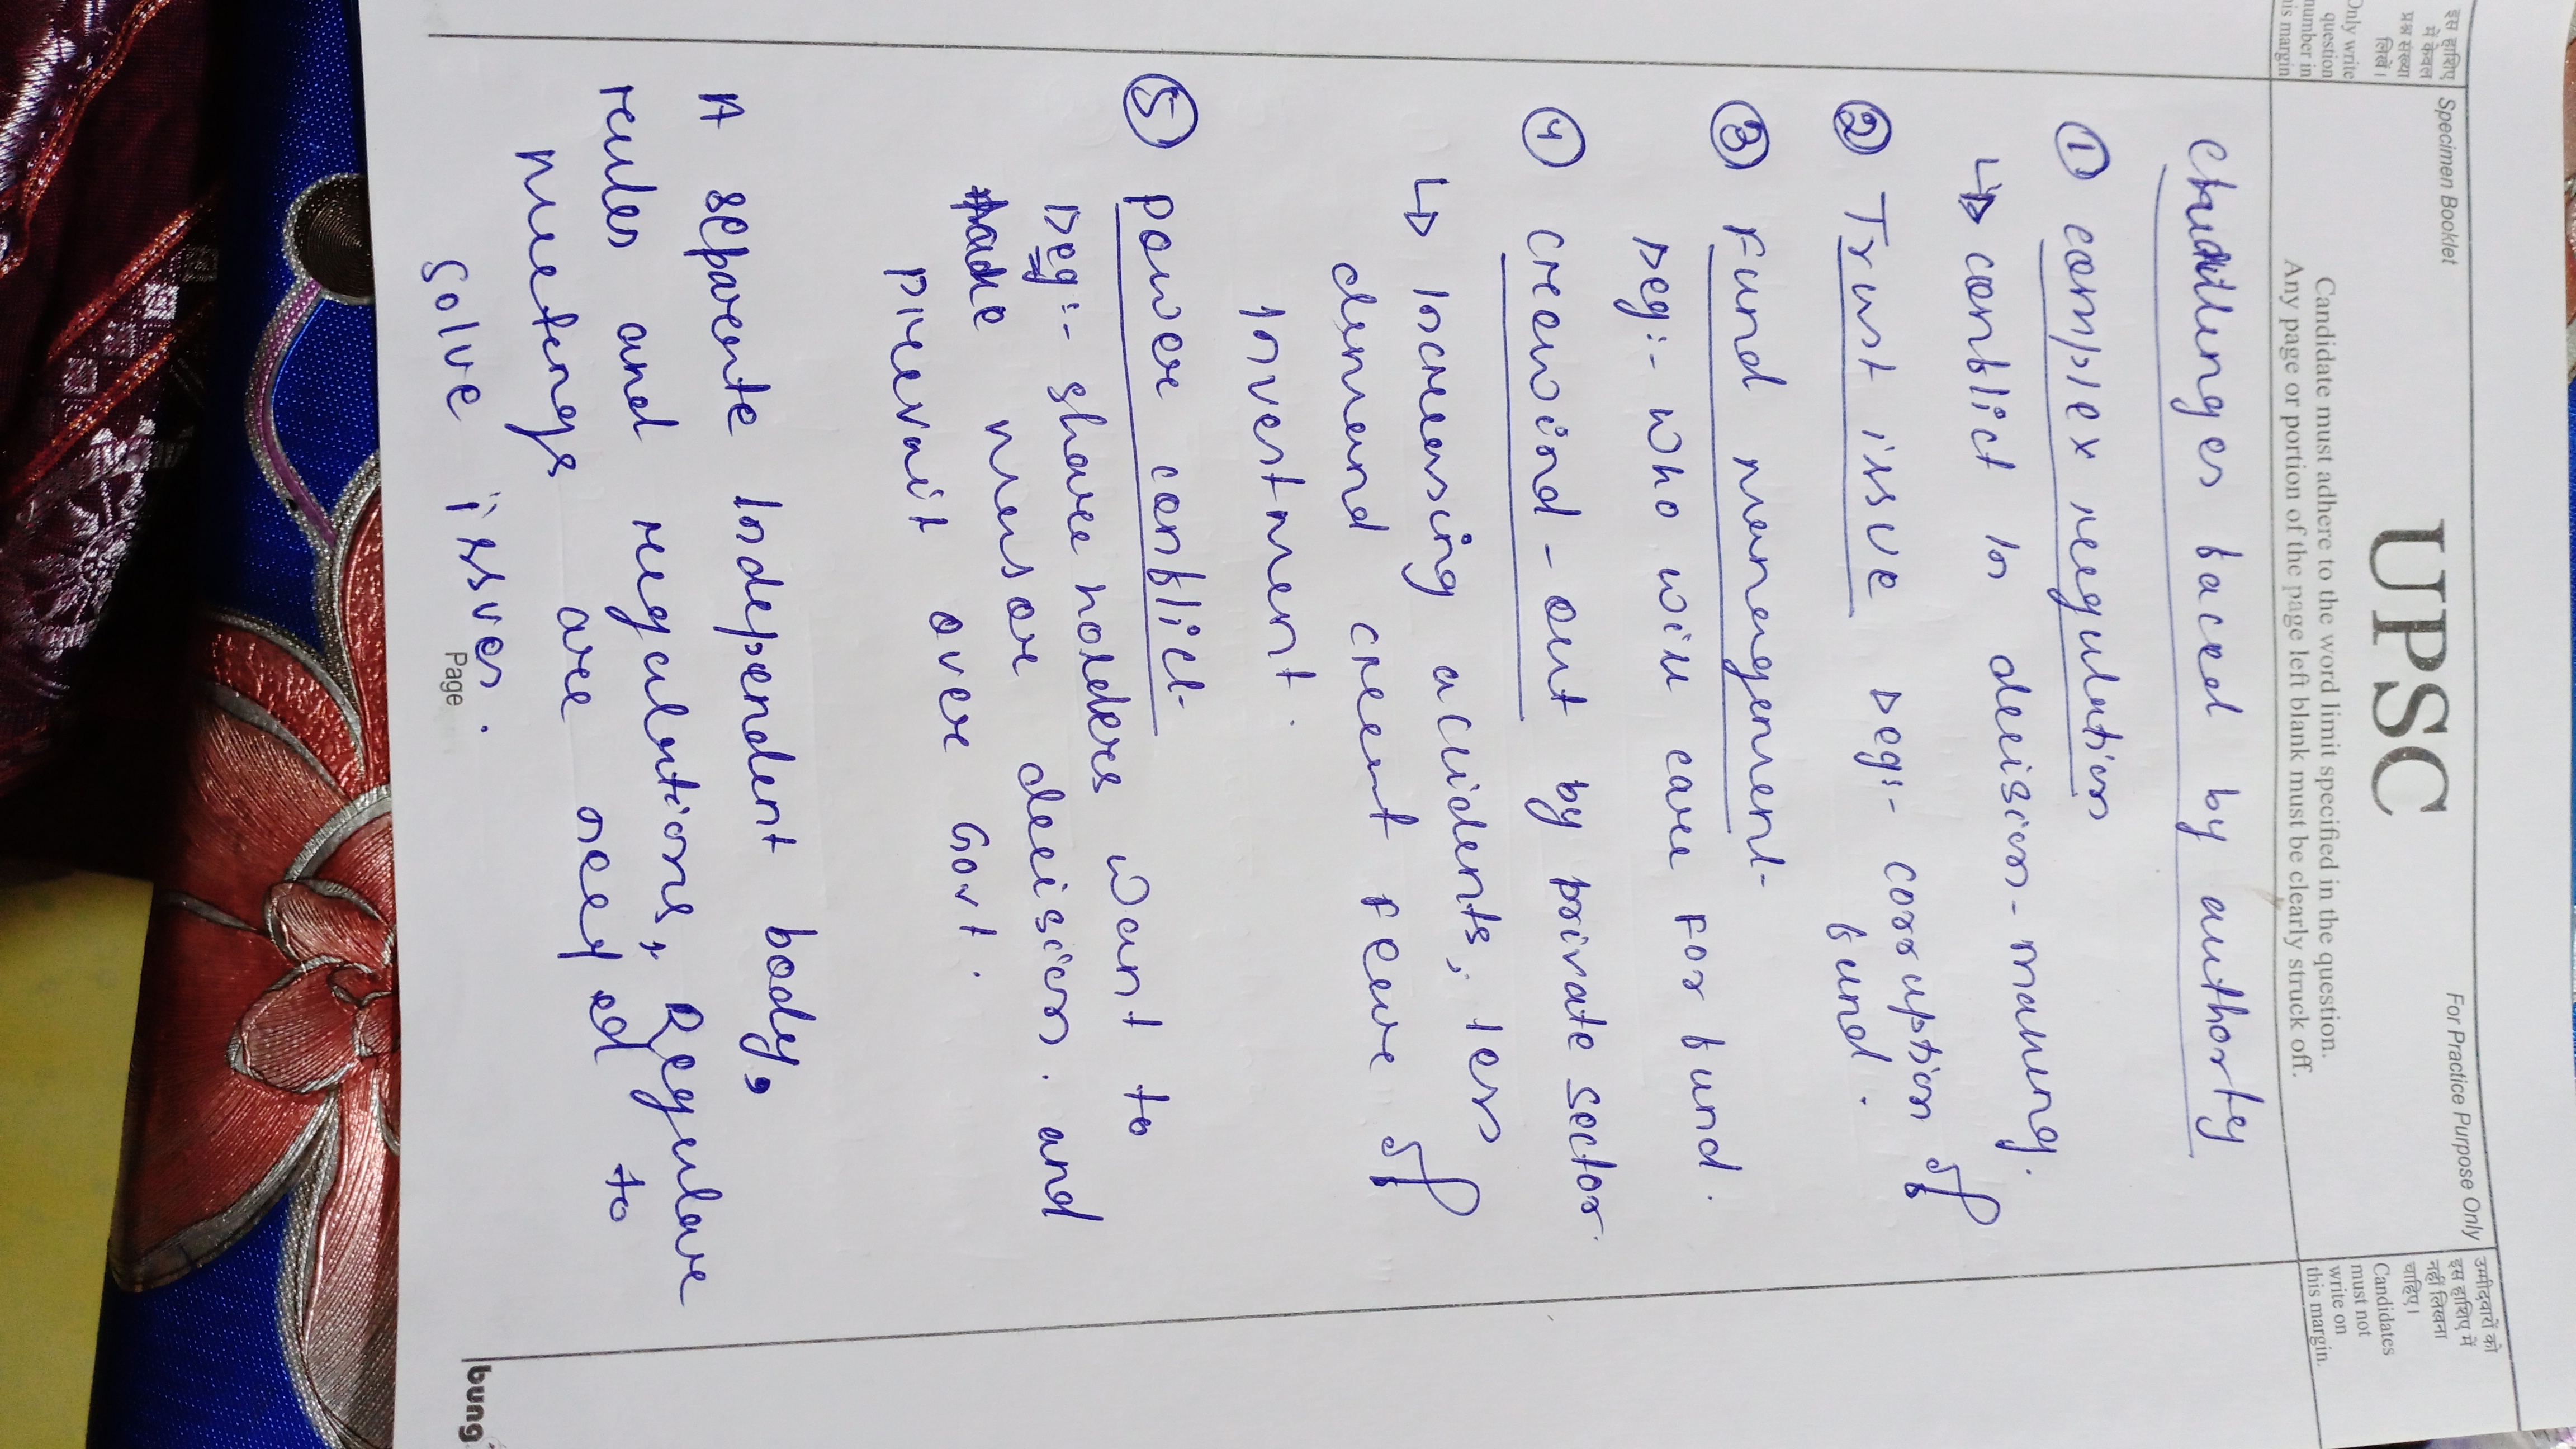 इस हाशिए
में केवल
प्रश्न संख्या
लिखें।
Only write
question
number in
this margin
Specimen Booklet
For Practice Purpose Only
UPSC
Candidate must adhere to the word limit specified in the question.
Any page or portion of the page left blank must be clearly struck off.
उम्मीदवारों को
इस हाशिए में
नहीं लिखना
चाहिए।
Candidates
must not
write on
this margin.
Challenges faced by authorty
① complex regulation
↳ conflict in decision-making.
② Trust issue ▷eg:- corruption of
fund.
③ Fund management
▷eg:- who will care for fund.
④ crewind-out by private sector
↳ Increasing accidents, less
demand creat feare of
Investment.
⑤ Power conflict
▷eg:- shareholders want to
take measore decision. and
prevait over Govt.
A separate Independent body,
rules and regulations, Regulare
meetengs are needed to
solve issues.
Page
bung